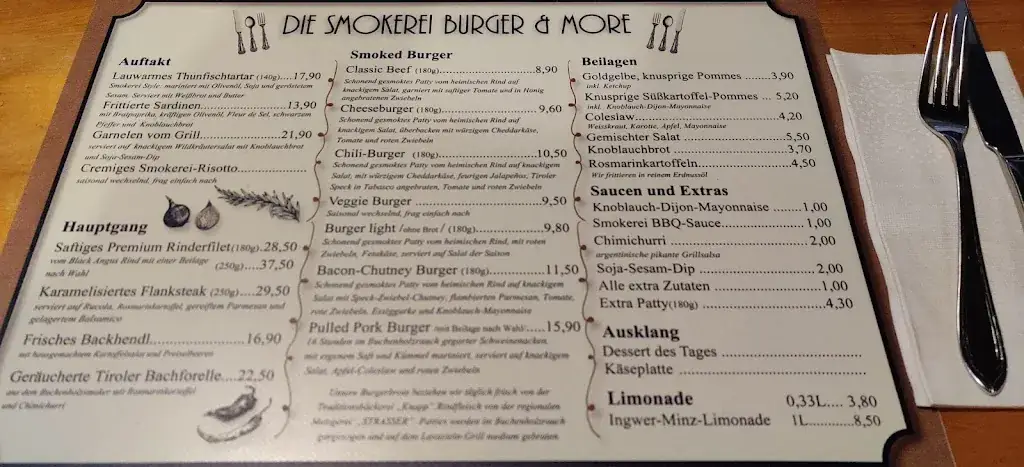 DIE SMOKEREI BURGER & MORE
Auftakt
Lauwarmes Thunfischtartar (140g)....17,90
Smokerei Style, mariniert mit Olivenöl, Soja und geröstetem
Sesam. Serviert mit Weißbrot und Butter
Frittierte Sardinen....................13,90
mit Bratpaprika, kräftigen Olivenöl, Fleur de Sel, schwarzem
Pfeffer und Knoblauchbrot
Garnelen vom Grill....................21,90
serviert auf knackigem Wildkräutersalat mit Knoblauchbrot
und Soja-Sesam-Dip
Cremiges Smokerei-Risotto..................
saisonal wechselnd, frag einfach nach
Hauptgang
Saftiges Premium Rinderfilet (180g).28,50
vom Black Angus Rind mit einer Beilage (250g)....37,50
nach Wahl
Karamelisiertes Flanksteak (250g)....29,50
serviert auf Rucola, Rosmarinkartoffel, gereiftem Parmesan und
gelagertem Balsamico
Frisches Backhendl........................16,90
mit hausgemachtem Kartoffelsalat und Preiselbeeren
Geräucherte Tiroler Bachforelle....22,50
aus dem Buchenholzsmoker mit Rosmarinkartoffel
und Chimichurri
Smoked Burger
Classic Beef (180g)..............................8,90
Schonend gesmoktes Patty vom heimischen Rind auf
knackigem Salat, garniert mit saftiger Tomate und in Honig
angebratenen Zwiebeln
Cheeseburger (180g)............................9,60
Schonend gesmoktes Patty vom heimischen Rind auf
knackigem Salat, überbacken mit würzigem Cheddarkäse,
Tomate und roten Zwiebeln
Chili-Burger (180g)............................10,50
Schonend gesmoktes Patty vom heimischen Rind auf knackigem
Salat, mit würzigem Cheddarkäse, feurigen Jalapeños, Tiroler
Speck in Tabasco angebraten, Tomate und roten Zwiebeln
Veggie Burger ................................9,50
Saisonal wechselnd, frag einfach nach
Burger light /ohne Brot/ (180g)................9,80
Schonend gesmoktes Patty vom heimischen Rind, mit roten
Zwiebeln, Fetakäse, serviert auf Salat der Saison
Bacon-Chutney Burger (180g)................11,50
Schonend gesmoktes Patty vom heimischen Rind auf knackigem
Salat mit Speck-Zwiebel-Chutney, flambierten Parmesan, Tomate,
rote Zwiebeln, Essiggurke und Knoblauch-Mayonnaise
Pulled Pork Burger /mit Beilage nach Wahl/.....15,90
16 Stunden im Buchenholzrauch gegarter Schweinenacken,
mit eigenem Saft und Kümmel mariniert, serviert auf knackigem
Salat, Apfel-Coleslaw und roten Zwiebeln
Unsere Burgerbrote beziehen wir täglich frisch von der
Traditionsbäckerei „Knapp". Rindfleisch von der regionalen
Metzgerei „STRASSER". Patties werden im Buchenholzrauch
gargezogen und auf dem Lavastein-Grill medium gebraten
Beilagen
Goldgelbe, knusprige Pommes .......3,90
inkl. Ketchup
Knusprige Süßkartoffel-Pommes ... 5,20
inkl. Knoblauch-Dijon-Mayonnaise
Coleslaw........................................4,20
Weisskraut, Karotte, Apfel, Mayonnaise
Gemischter Salat ............................5,50
Knoblauchbrot ................................3,70
Rosmarinkartoffeln..........................4,50
Wir frittieren in reinem Erdnussöl
Saucen und Extras
Knoblauch-Dijon-Mayonnaise ........1,00
Smokerei BBQ-Sauce......................1,00
Chimichurri ....................................2,00
argentinische pikante Grillsalsa
Soja-Sesam-Dip ..............................2,00
Alle extra Zutaten ............................1,00
Extra Patty(180g) ............................4,30
Ausklang
Dessert des Tages ..............................
Käseplatte ........................................
Limonade 0,33L.... 3,80
Ingwer-Minz-Limonade 1L............8,50